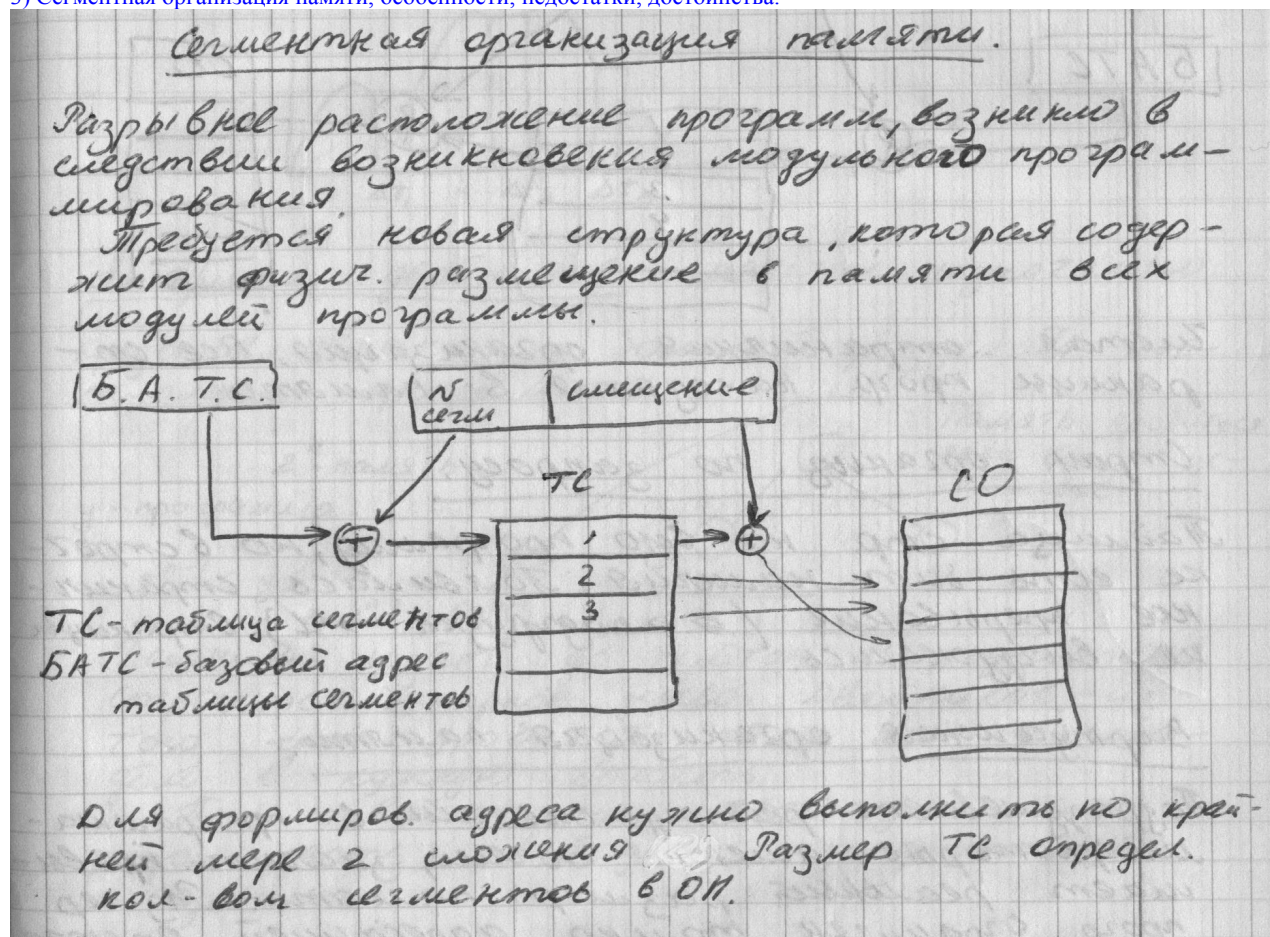 3) Сегментная организация памяти, особенности, недостатки, достоинства.
Сегментная организация памяти.
Разрывное расположение программ, возникло в
следствии возникновения модульного програм-
мирования.
Требуется новая структура, которая содер-
жит физич. размещение в памяти всех
модулей программы.
Б. А. Т. С.
N сегм
смещение
ТС
СО
+
+
1
2
3
ТС - таблица сегментов
БАТС - базовый адрес
таблицы сегментов
Для формиров. адреса нужно выполнить по край-
ней мере 2 сложения Размер ТС определ.
кол-вом сегментов в ОП.